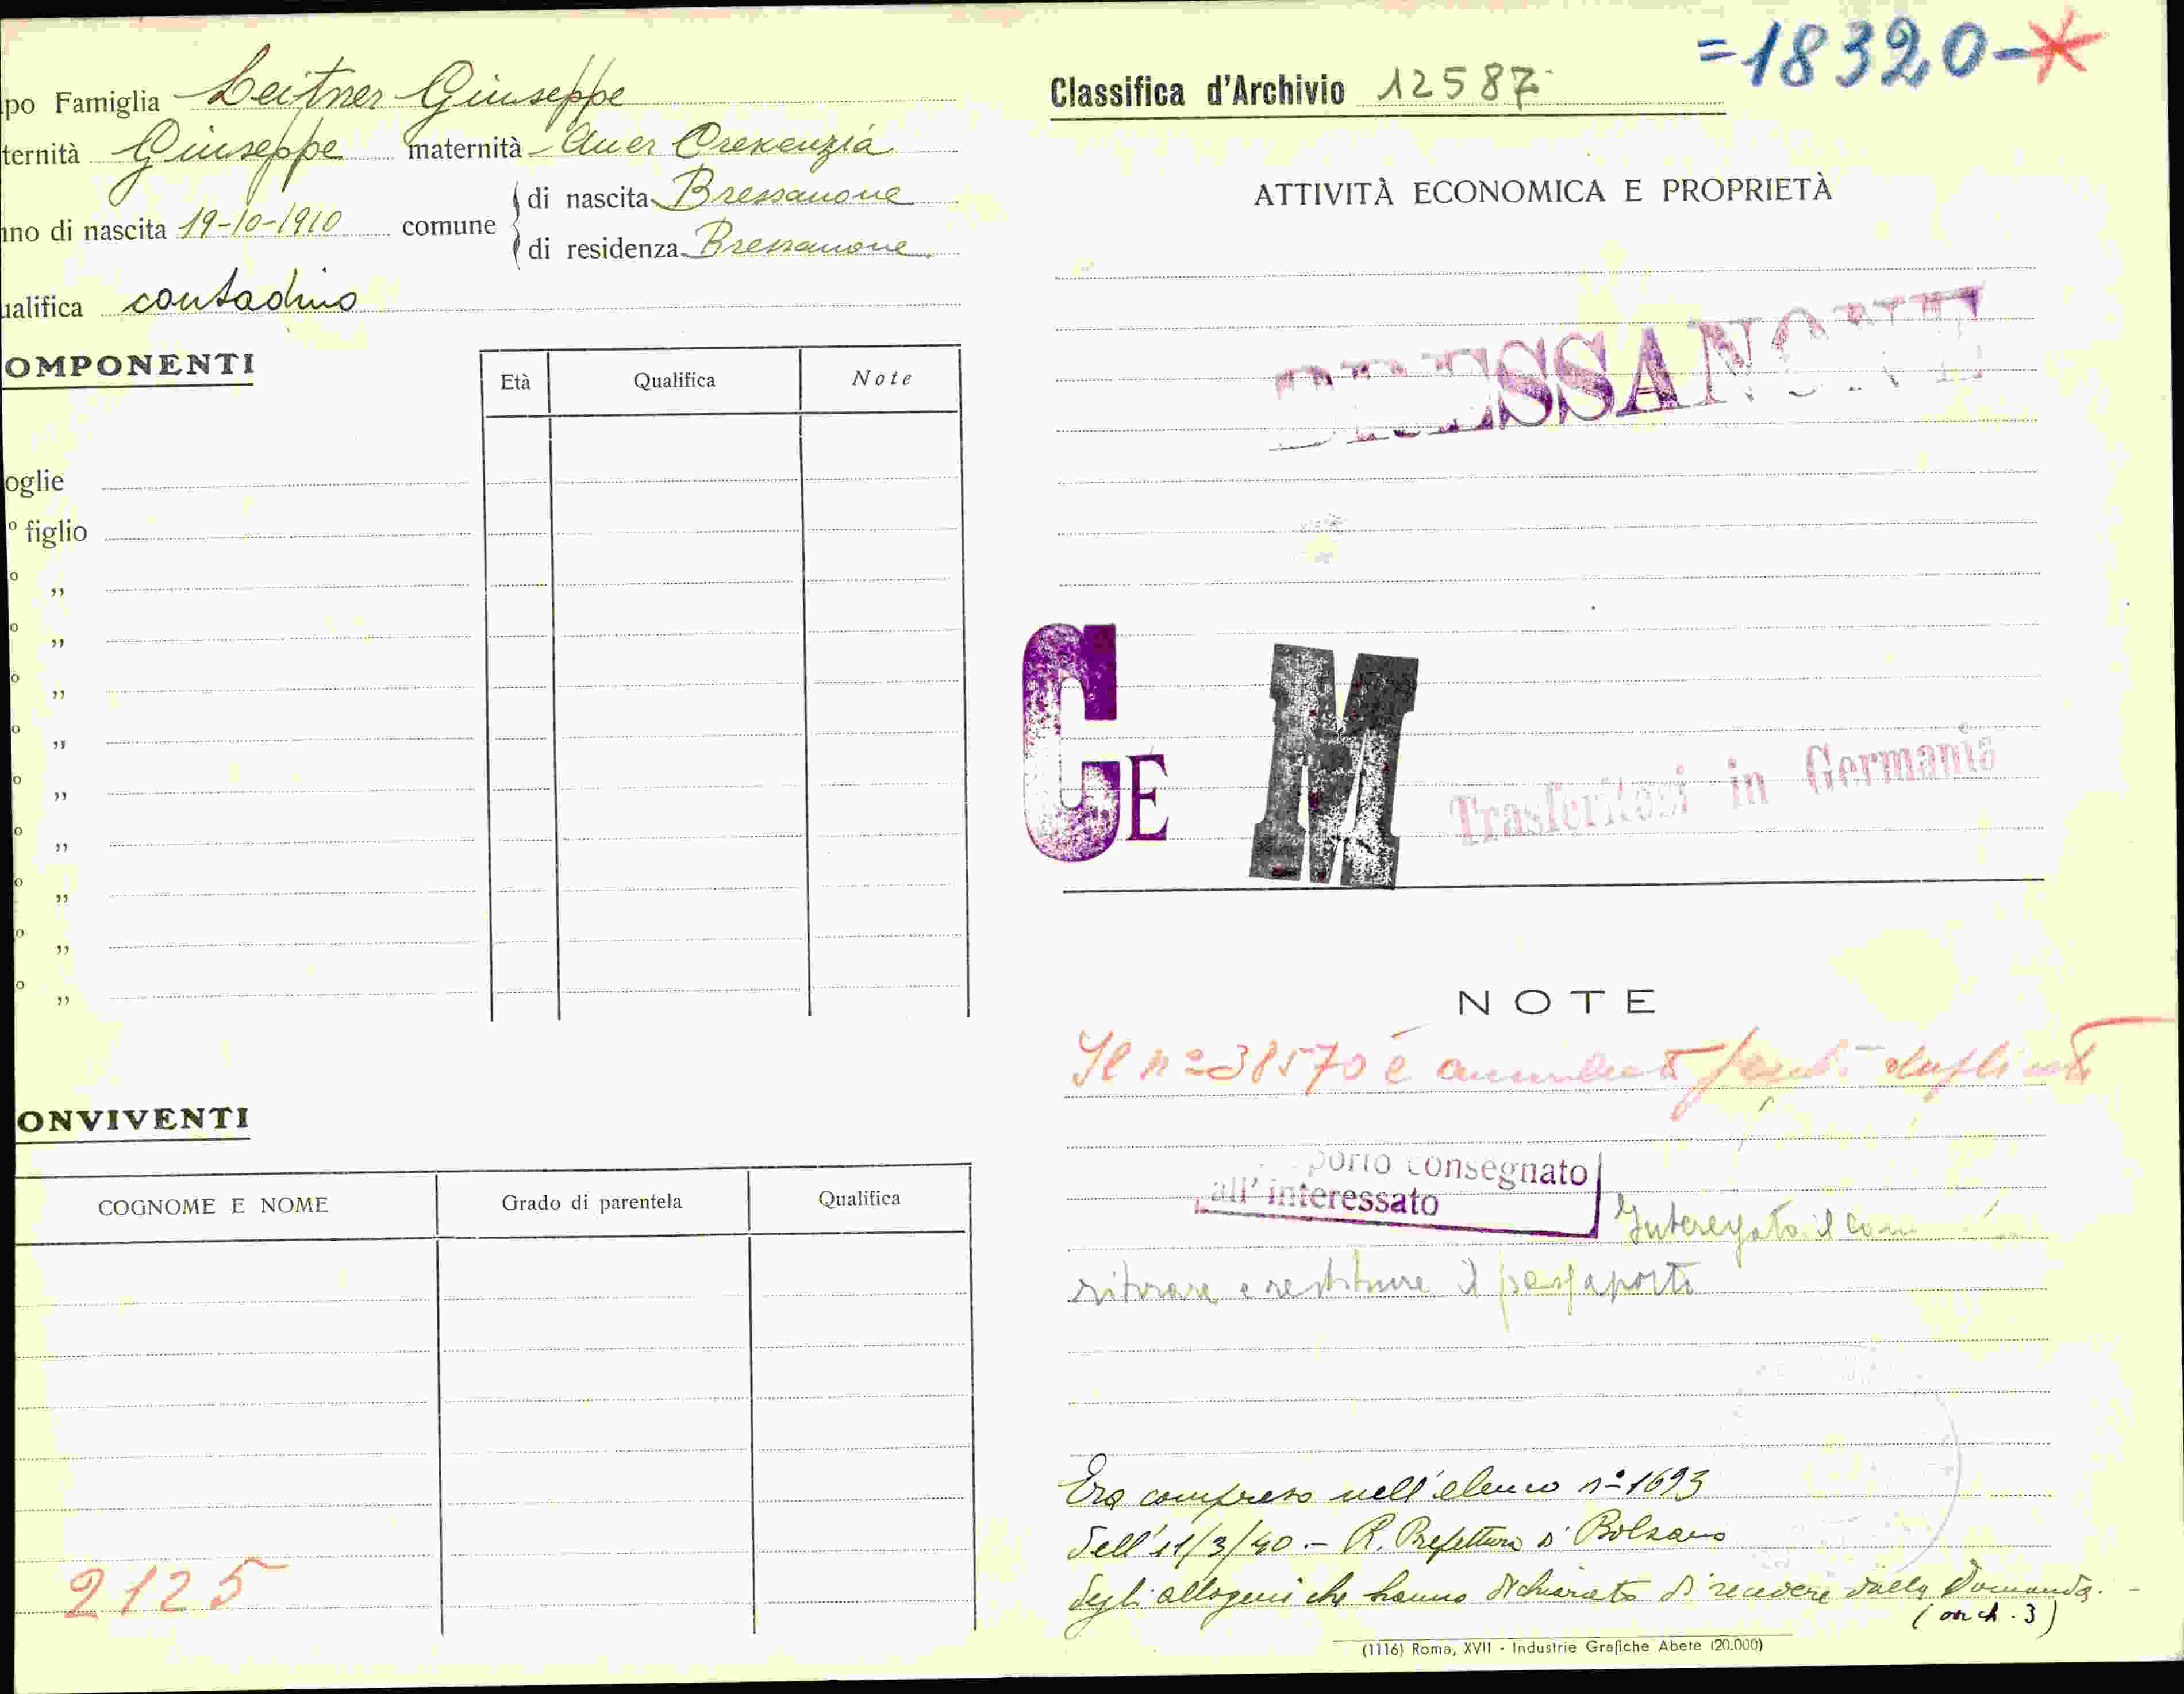 po Famiglia Leitner Giuseppe
ternità Giuseppe maternità Auer Crexenzia
nno di nascita 19-10-1910 comune di nascita Bressanone
di residenza Bressanone
ualifica contadino
OMPONENTI
Età Qualifica Note
oglie
º figlio
º „
º „
º „
º „
º „
º „
º „
º „
º „
ONVIVENTI
COGNOME E NOME Grado di parentela Qualifica
2125
=18320-*
Classifica d'Archivio 12587
ATTIVITÀ ECONOMICA E PROPRIETÀ
BRESSANONE
C E M
Trasferitosi in Germania
NOTE
Il nº 38570 è
porto consegnato
all' interessato
il
ritirare e restituire il passaporto
Era compreso nell'elenco nº 1693
dell'11/3/40.- R. Prefettura di Bolzano
degli allogeni che hanno dichiarato di recedere dalla domanda.
( arch. 3)
(1116) Roma, XVII - Industrie Grafiche Abete (20.000)